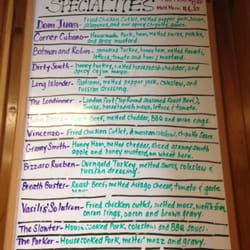 SPECIALTIES
Dom Juan - Fried Chicken Cutlet, melted pepper jack, bacon,
Corner Cubano - Housemade Pork, ham, melted swiss, pickles,
and spicy mustard.
Batman and Robin - turkey, honey ham, melted
lettuce, tomato and mayo
Dirty South - Honey turkey, melted horseradish cheddar, and
spicy cajun mayo.
Long Islander - Pastrami, melted pepper jack, coleslaw, and
russian dressing.
The Londoner - London Port (Top Round Seasoned Roast Beef),
Swiss, horseradish mayo, lettuce & tomato
melted cheddar, BBQ and onion rings.
Vincenzo - Fried Chicken Cutlet,
Granny Smith - Honey Ham, melted cheddar, sliced granny smith
apple and honey mustard, on wheat hero.
Bizzaro Reuben - Ovengold Turkey, melted Swiss, coleslaw &
russian dressing.
Breath Buster - Roast Beef, melted Asiago Cheese, tomato & garlic
Vasili's Solution - Fried chicken outlet, melted mozz,
onion rings, bacon and brown gravy
The Slawter - House Cooked Pork, coleslaw, & BBQ Sauce
The Porker - House Cooked Pork, melted mozz and gravy.